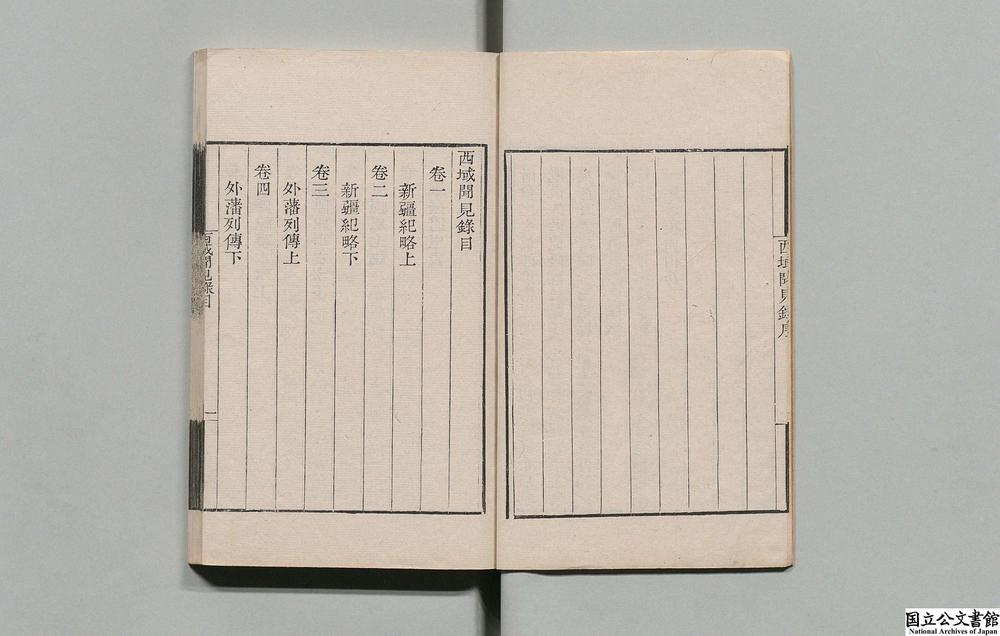 西域聞見錄序
西域聞見錄目
卷一
新疆紀略上
卷二
新疆紀略下
卷三
外藩列傳上
卷四
外藩列傳下
西域聞見錄目
一
国立公文書館
National Archives of Japan